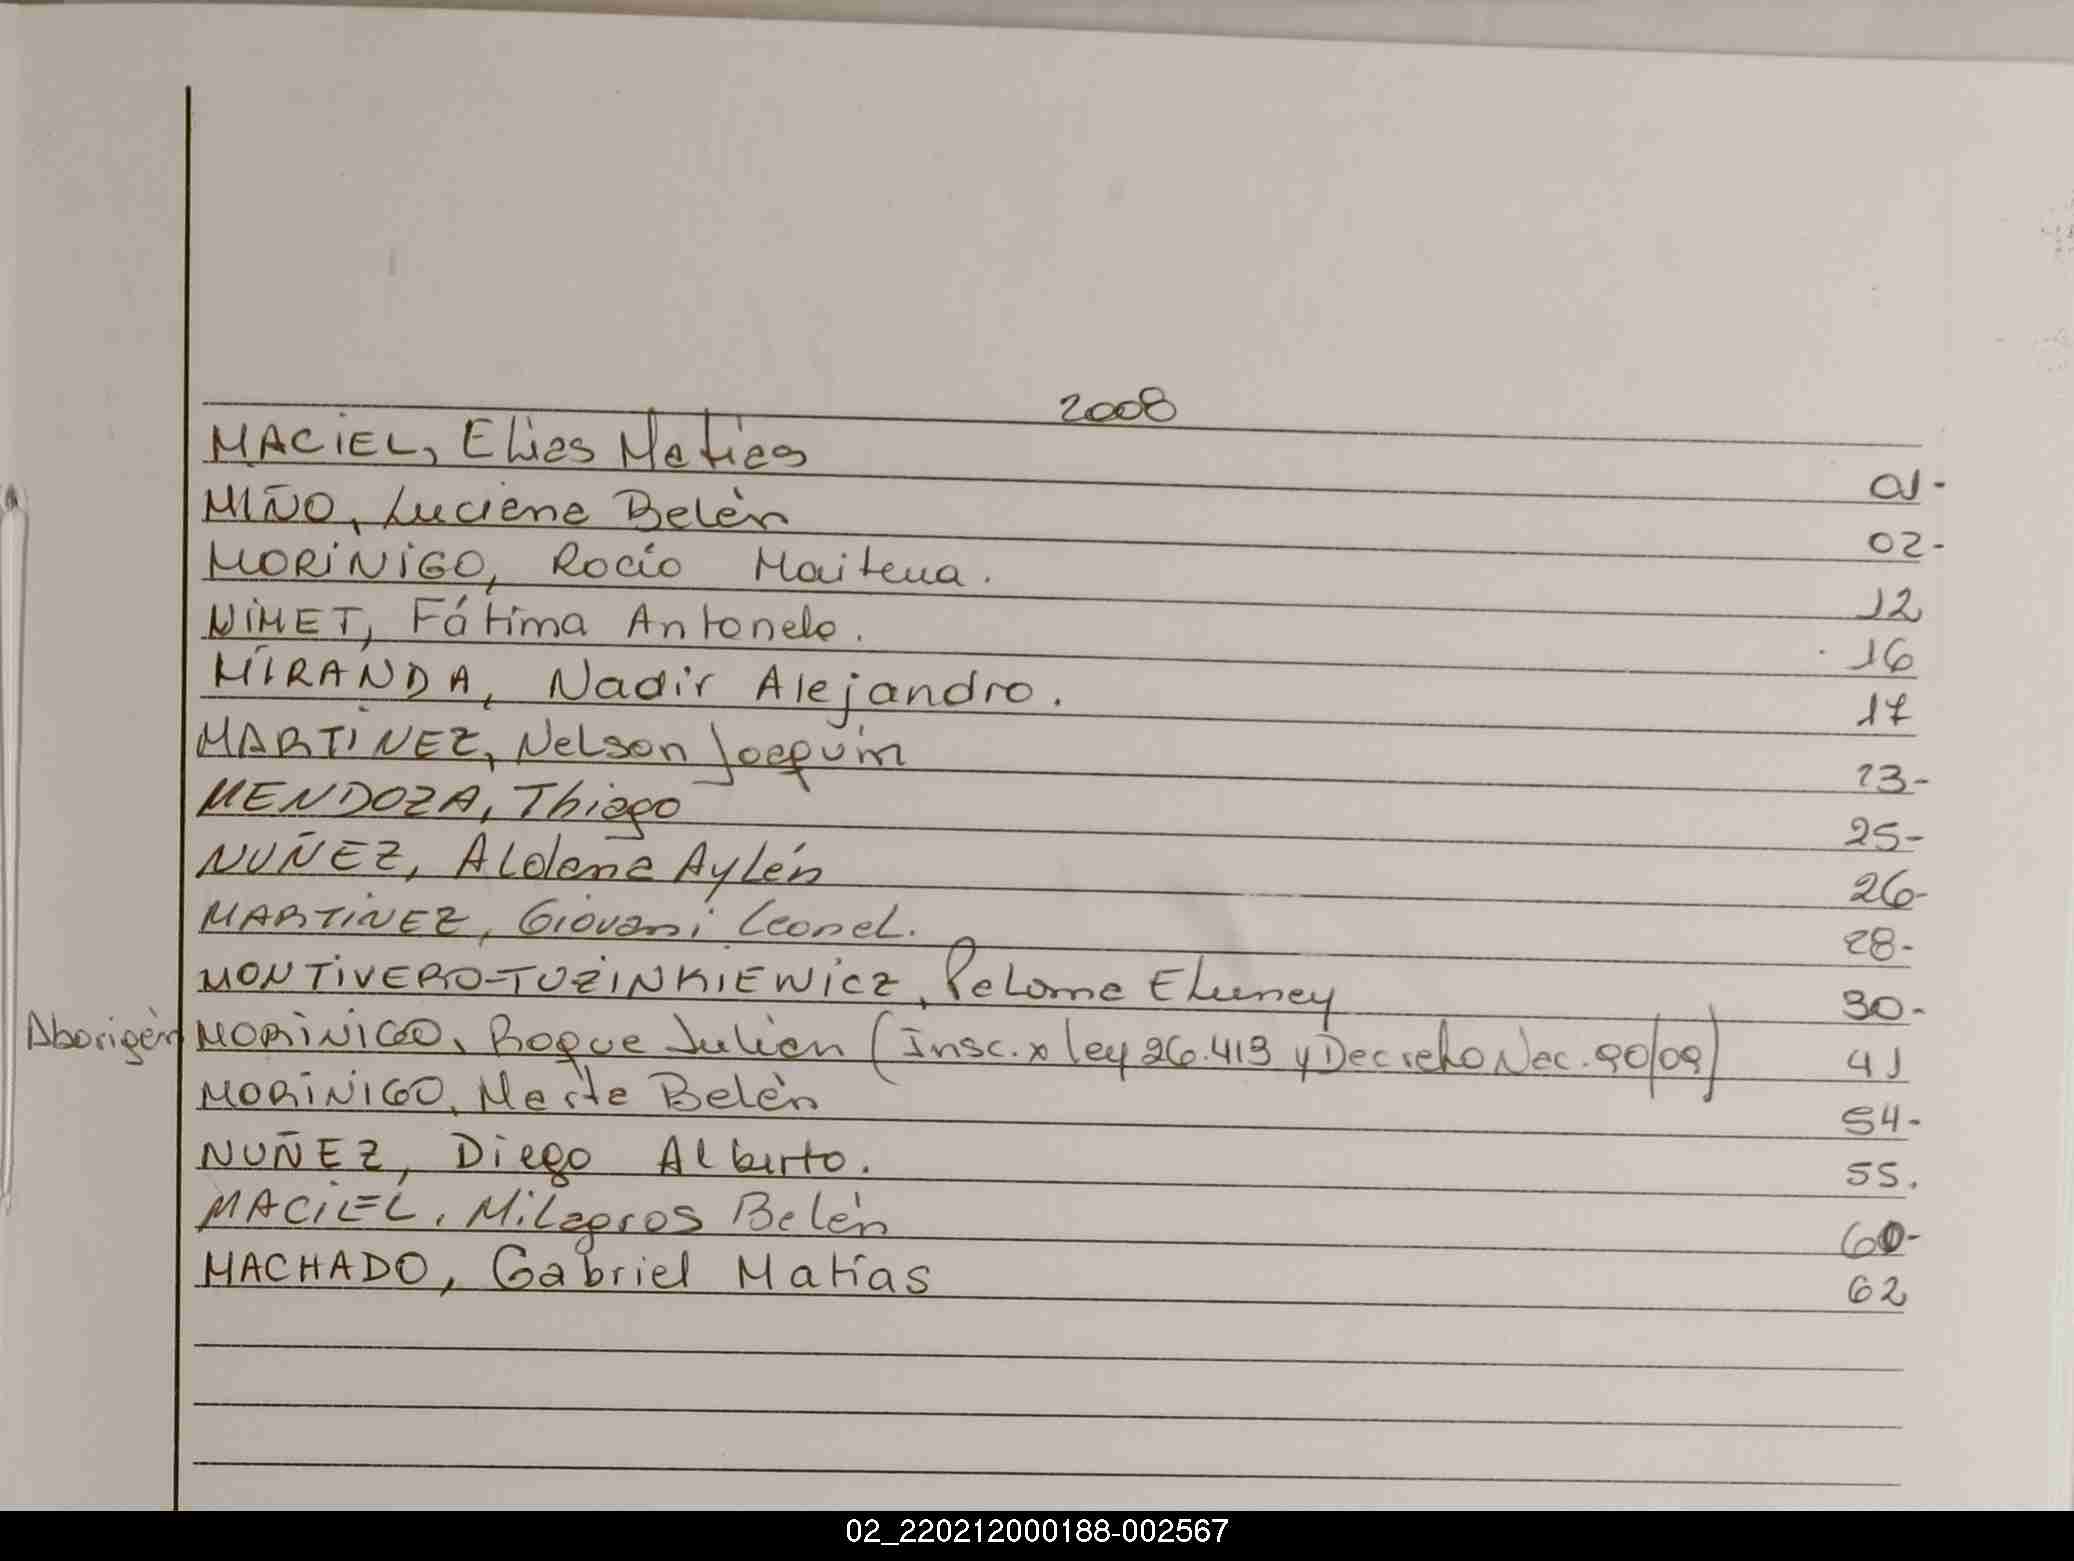 2008
MACIEL, Elias Matias 01-
MIÑO, Luciana Belén 02-
MORINIGO, Rocío Maitena. 12
NIMET, Fátima Antonela. 16
MIRANDA, Nadir Alejandro. 17
MARTINEZ, Nelson Joaquín 23-
MENDOZA, Thiago 25-
NUÑEZ, Aldana Aylén 26-
MARTINEZ, Giovani Leonel. 28-
MONTIVERO-TUZINKIEWICZ, Paloma Eluney 30-
Aborigén MORINIGO, Roque Julian (Insc. x ley 26.413 y Decreto Nac. 90/09) 41
MORINIGO, Marta Belén 54-
NUÑEZ, Diego Alberto. 55.
MACIEL, Milagros Belén 60-
MACHADO, Gabriel Matías 62
02_220212000188-002567